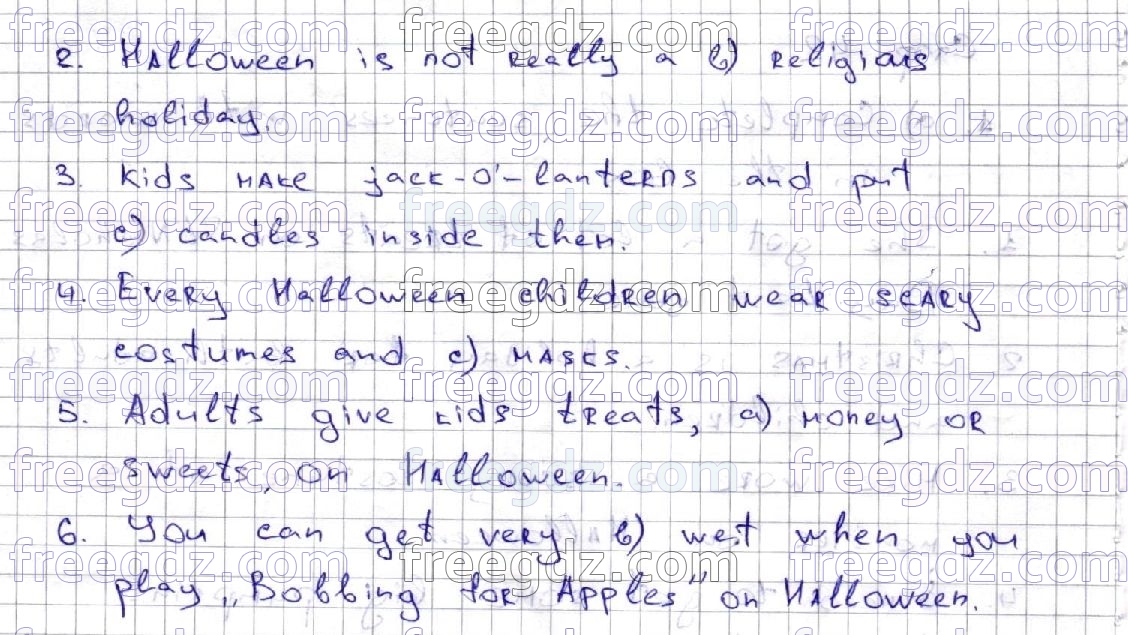 2. Halloween is not really a b) religious
holiday.
3. Kids make jack-o'-lanterns and put
c) candles inside them.
4. Every Halloween children wear scary
costumes and c) masks.
5. Adults give kids treats, a) money or
sweets, on Halloween.
6. You can get very b) wet when you
play „Bobbing for Apples" on Halloween.